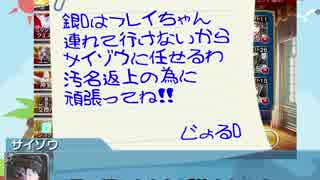 銀Dはフレイちゃん
連れて行けないから
サイゾウに任せるわ
汚名返上の為に
頑張ってね!!
じょるD
サイゾウ